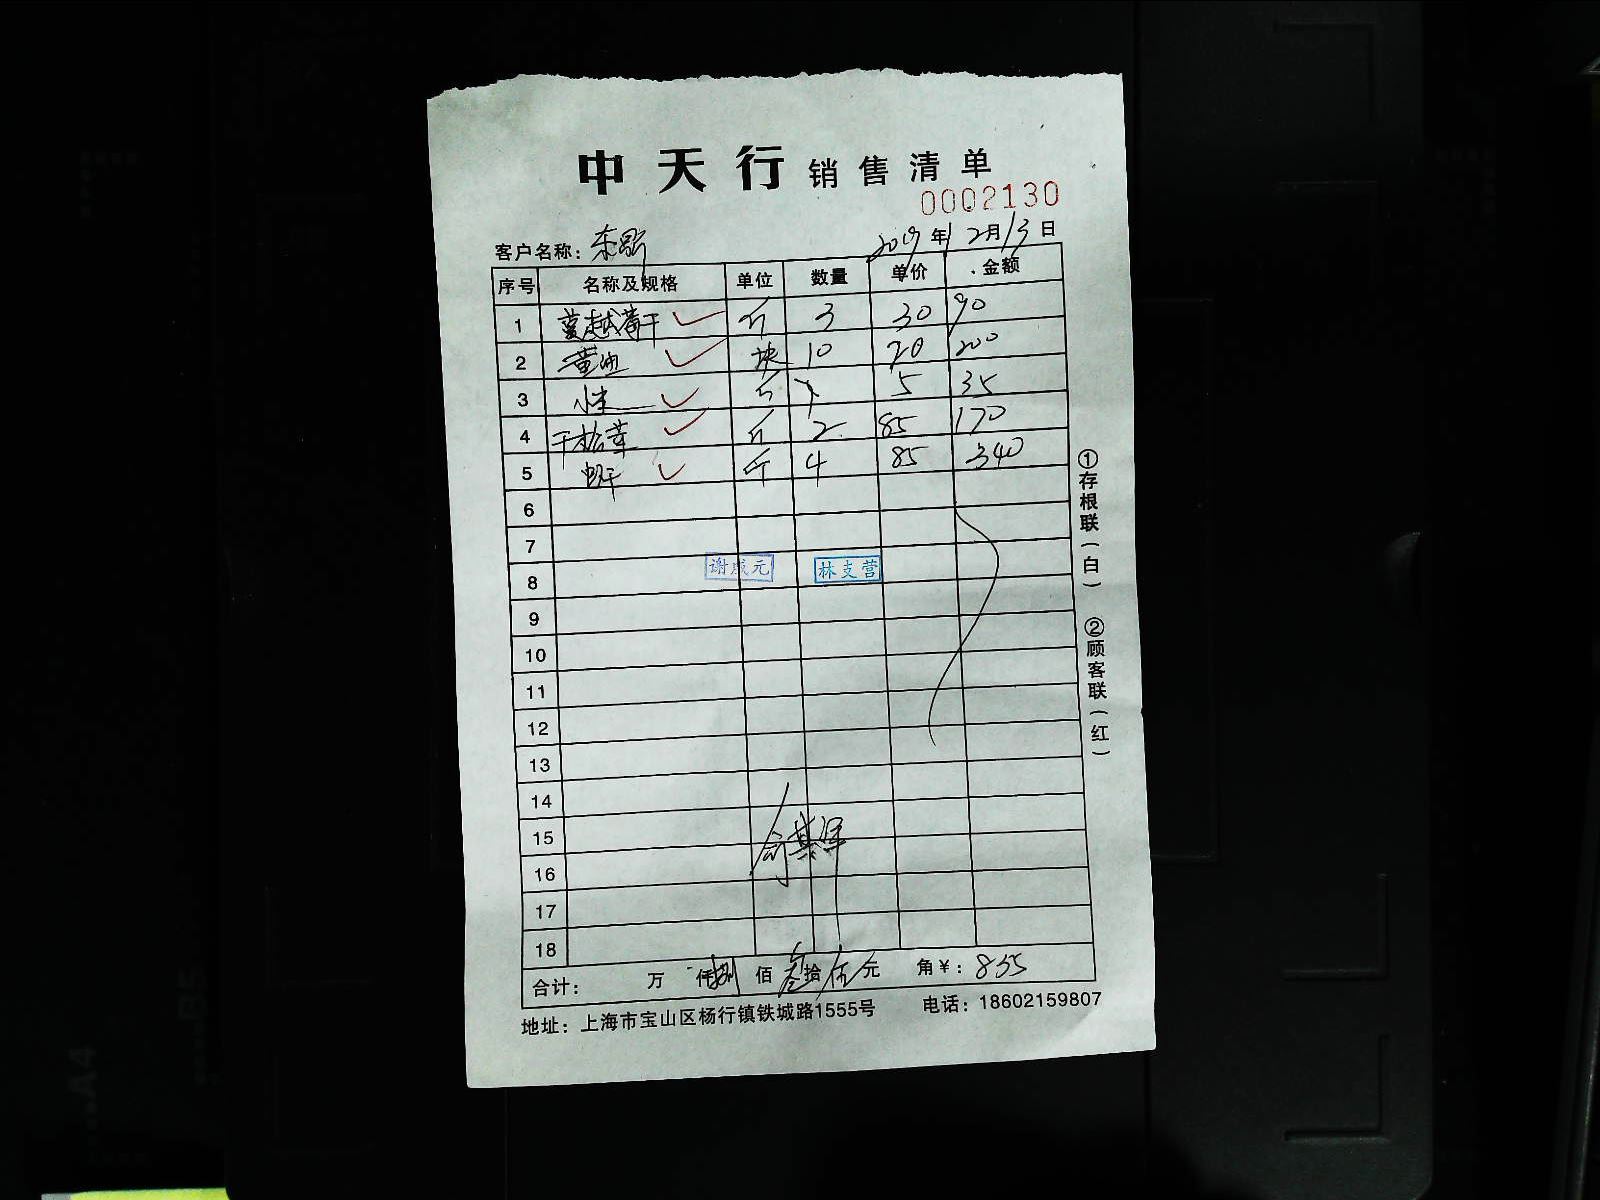 中天行 销售清单
0002130
客户名称: 2019年12月13日
序号 名称及规格 单位 数量 单价 金额
1 蔓越莓干 斤 3 30 90
2 黄油 块 10 20 200
3 小米 斤 7 5 35
4 干贻 斤 2 85 170
5 虾干 斤 4 85 340
6
7
8
谢成元 林支营
9
10
11
12
13
14
15
16
17
18
合计: 万 仟捌佰叁拾伍元 角¥: 835
地址: 上海市宝山区杨行镇铁城路1555号 电话: 18602159807
①存根联(白)
②顾客联(红)